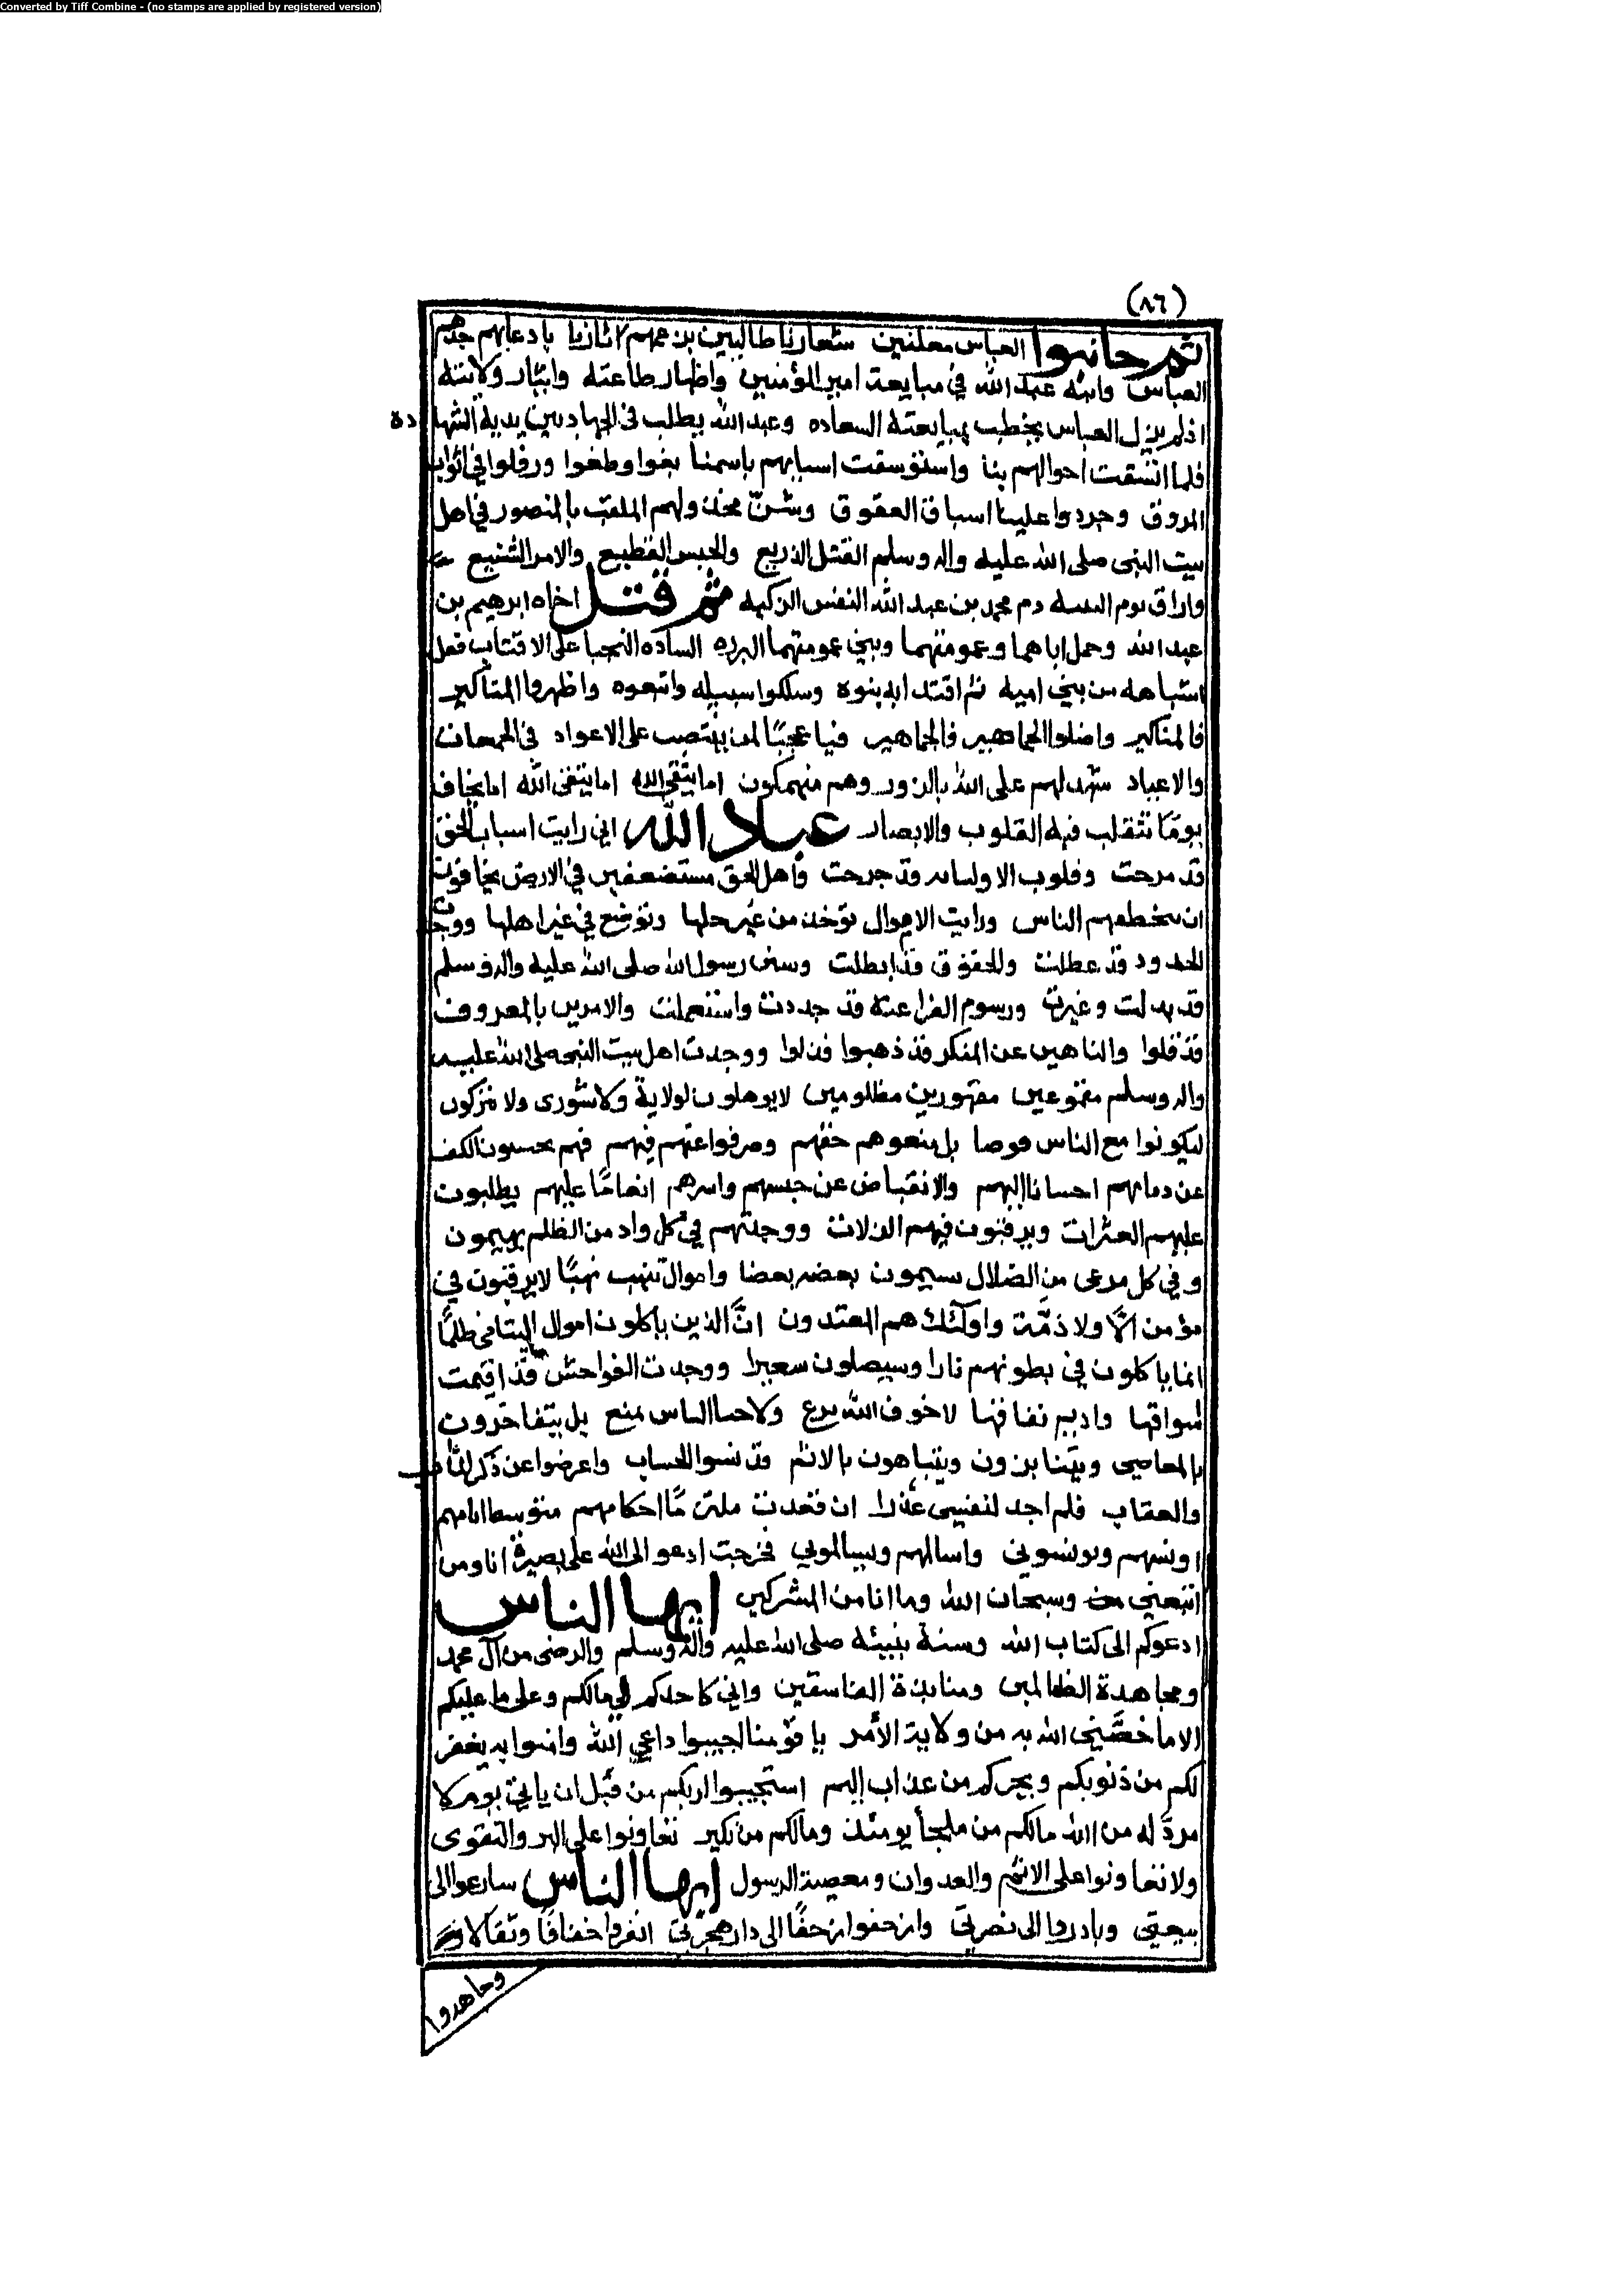 Converted by Tiff Combine - (no stamps are applied by registered version)
(٨٦)
ثم جاء بنوا العباس معلنين شعارنا طالبين بزعمهم اثارنا بادعائهم جدهم
العباس وابنه عبد الله في مبايعة امير المؤمنين واظهار طاعته وايثار ولايته
اذ لم يزل العباس يخطب بمبايعته السعاده وعبد الله يطلب في الجهاد بين يديه الشهاده
فلما اتسقت احوالهم بنا واستوسقت اسبابهم باسمنا بغوا وطغوا ورفلوا في اثواب
المروق وجردوا علينا اسياف العقوق وشنّ مخذولهم الملقب بالمنصور في اهل
بيت النبى صلى الله عليه واله وسلم القتل الذريع والحبس الفظيع والامر الشنيع
واراق يوم دم محمد بن عبد الله النفس الزكيه ثم قتل اخاه ابرهيم بن
عبد الله وحمل اباهما وعمومتهما وبني عمومتهما البرره الساده النجبا على الاقتاب فعل
اشباهه من بني اميه ثم اقتدا به بنوه وسلكوا سبيله واتبعوه واظهروا المناكير
فالمناكير واضلوا الجماهير فالجماهير فيا عجبًا لمن ينتصب على الاعواد في الجمعات
والاعياد شهد لهم على الله بالزور وهم منهمكون اما يتقي الله اما يتقي الله اما يخاف
يومًا تتقلب فيه القلوب والابصار عباد الله اني رايت اسباب الحق
قد مرجت وقلوب الاوليا به قد جرحت واهل الحق مستضعفين في الارض يخافون
ان يتخطفهم الناس ورايت الاموال تؤخذ من غير حلها وتوضع في غير اهلها ووجدت
الحدود قد عطلت والحقوق قد ابطلت وسنن رسول الله صلى الله عليه واله وسلم
قد بدلت وغيرت ورسوم الفراعنه قد جددت واستعملت والامرين بالمعروف
قد قلوا والناهين عن المنكر قد ذهبوا فذلوا ووجدت اهل بيت النبي صلى الله عليه
واله وسلم مقموعين مقهورين مظلومين لا يوهلون لولاية ولا شورى ولا يتركون
ليكونوا مع الناس فوضا بل منعوهم حقهم وصرفوا عنهم فيهم فهم يحسبون الكف
عن دمائهم احسانا اليهم والانقباض عن حبسهم واسرهم انعامًا عليهم يطلبون
عليهم العثرات ويرقبون فيهم الزلات ووجدتهم في كل واد من الظلم يهيمون
وفي كل مرعى من الضلال يسيمون بعضه بعضا واموال تنهب نهبًا لا يرقبون في
مؤمن الاًّ ولا ذمّة واولٰئك هم المعتدون انّ الذين ياكلون اموال اليتامى ظلمًا
انما ياكلون في بطونهم نارا وسيصلون سعيرا ووجدت الفواحش قد اقيمت
اسواقها واديم نفاقها لا خوف الله يردع ولا حيا الناس يمنع بل يتفاخرون
بالمعاصي ويتنابزون ويتباهون بالاثم قد نسوا الحساب واعرضوا عن ذكر المآب
والعقاب فلم اجد لنفسي عذرا ان قعدت ملتزمًا احكامهم متوسطا اياهم
اونسهم ويونسوني واسالمهم ويسالموني فخرجت ادعو الى الله على بصيرة انا ومن
اتبعني وسبحان الله وما انا من المشركين ايها الناس
ادعوكم الى كتاب الله وسنة نبيئه صلى الله عليه وآله وسلم والرضى من آل محمد
ومجاهدة الظالمين ومنابذة الفاسقين واني كاحدكم لي مالكم وعلي ما عليكم
الا ما خصّني الله به من ولاية الأمر يا قومنا اجيبوا داعي الله وامنوا به يغفر
لكم من ذنوبكم ويجركم من عذاب اليم استجيبوا لربكم من قبل ان ياتي يوم لا
مردّ له من الله مالكم من ملجأ يومئذ ومالكم من نكير تعاونوا على البر والتقوى
ولا تعاونوا على الاثم والعدوان ومعصية الرسول ايها الناس سارعوا الى
بيعتي وبادروا الى نصرتي وازحفوا زحفًا الى دار هجرتي انفروا خفافًا وثقالا
وجاهدوا